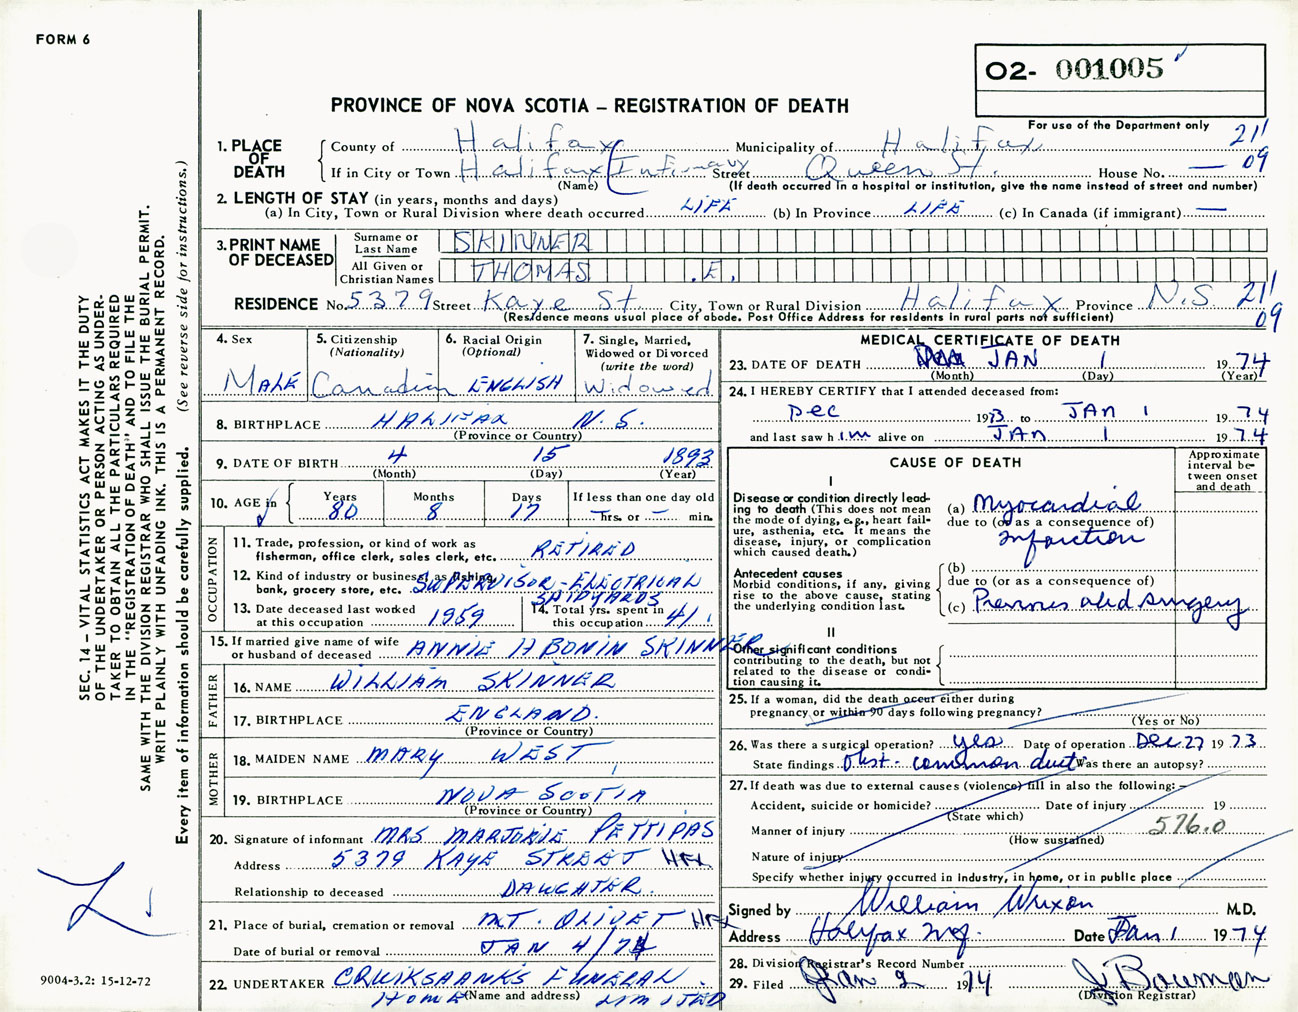 FORM 6
O2- 001005
PROVINCE OF NOVA SCOTIA – REGISTRATION OF DEATH
For use of the Department only
21'
09
1. PLACE OF DEATH
County of Halifax Municipality of Halifax
If in City or Town Halifax Infirmary Street Queen St. House No. —
(Name) (If death occurred in a hospital or institution, give the name instead of street and number)
2. LENGTH OF STAY (in years, months and days)
(a) In City, Town or Rural Division where death occurred LIFE (b) In Province LIFE (c) In Canada (if immigrant) —
3. PRINT NAME OF DECEASED
Surname or Last Name SKINNER
All Given or Christian Names THOMAS .E.
RESIDENCE No. 5379 Street Kaye St. City, Town or Rural Division Halifax Province N.S. 21'
09
(Residence means usual place of abode. Post Office Address for residents in rural parts not sufficient)
4. Sex MALE
5. Citizenship (Nationality) Canadian
6. Racial Origin (Optional) ENGLISH
7. Single, Married, Widowed or Divorced (write the word) Widowed
8. BIRTHPLACE HALIFAX N.S.
(Province or Country)
9. DATE OF BIRTH 4 15 1893
(Month) (Day) (Year)
10. AGE in Years 80 Months 8 Days 17 If less than one day old — hrs. or — min.
OCCUPATION
11. Trade, profession, or kind of work as fisherman, office clerk, sales clerk, etc. RETIRED
12. Kind of industry or business, as fishing, bank, grocery store, etc. SUPERVISOR - ELECTRICAL
SHIPYARDS
13. Date deceased last worked at this occupation 1959
14. Total yrs. spent in this occupation 41
15. If married give name of wife or husband of deceased ANNIE H BONIN SKINNER
FATHER
16. NAME WILLIAM SKINNER
17. BIRTHPLACE ENGLAND.
(Province or Country)
MOTHER
18. MAIDEN NAME MARY WEST
19. BIRTHPLACE NOVA SCOTIA
(Province or Country)
20. Signature of informant MRS MARJORIE PETTIPAS
Address 5379 KAYE STREET HFX
Relationship to deceased DAUGHTER.
21. Place of burial, cremation or removal MT. OLIVET HFX
Date of burial or removal JAN 4/74
22. UNDERTAKER CRUIKSHANKS FUNERAL
HOME (Name and address) LIMITED
MEDICAL CERTIFICATE OF DEATH
23. DATE OF DEATH JAN 1 1974
(Month) (Day) (Year)
24. I HEREBY CERTIFY that I attended deceased from:
Dec 1973 to JAN 1 1974
and last saw him alive on JAN 1 1974
CAUSE OF DEATH
Approximate interval between onset and death
I
Disease or condition directly leading to death (This does not mean the mode of dying, e.g., heart failure, asthenia, etc. It means the disease, injury, or complication which caused death.)
(a) Myocardial
due to (or as a consequence of)
infarction
Antecedent causes
Morbid conditions, if any, giving rise to the above cause, stating the underlying condition last.
(b)
due to (or as a consequence of)
(c) Previous abd surgery
II
Other significant conditions
contributing to the death, but not related to the disease or condition causing it.
25. If a woman, did the death occur either during
pregnancy or within 90 days following pregnancy?
(Yes or No)
26. Was there a surgical operation? yes Date of operation Dec 27 1973
State findings Obst. common duct Was there an autopsy?
27. If death was due to external causes (violence) fill in also the following: –
Accident, suicide or homicide? Date of injury 19
(State which)
Manner of injury 576.0
(How sustained)
Nature of injury
Specify whether injury occurred in Industry, in home, or in public place
Signed by William Wrixon M.D.
Address Halifax Date Jan 1 1974
28. Division Registrar's Record Number
29. Filed Jan 2 1974 J Bowman
(Division Registrar)
SEC. 14 – VITAL STATISTICS ACT MAKES IT THE DUTY
OF THE UNDERTAKER OR PERSON ACTING AS UNDER-
TAKER TO OBTAIN ALL THE PARTICULARS REQUIRED
IN THE "REGISTRATION OF DEATH" AND TO FILE THE
SAME WITH THE DIVISION REGISTRAR WHO SHALL ISSUE THE BURIAL PERMIT.
WRITE PLAINLY WITH UNFADING INK. THIS IS A PERMANENT RECORD.
Every item of information should be carefully supplied. (See reverse side for instructions.)
9004-3.2: 15-12-72